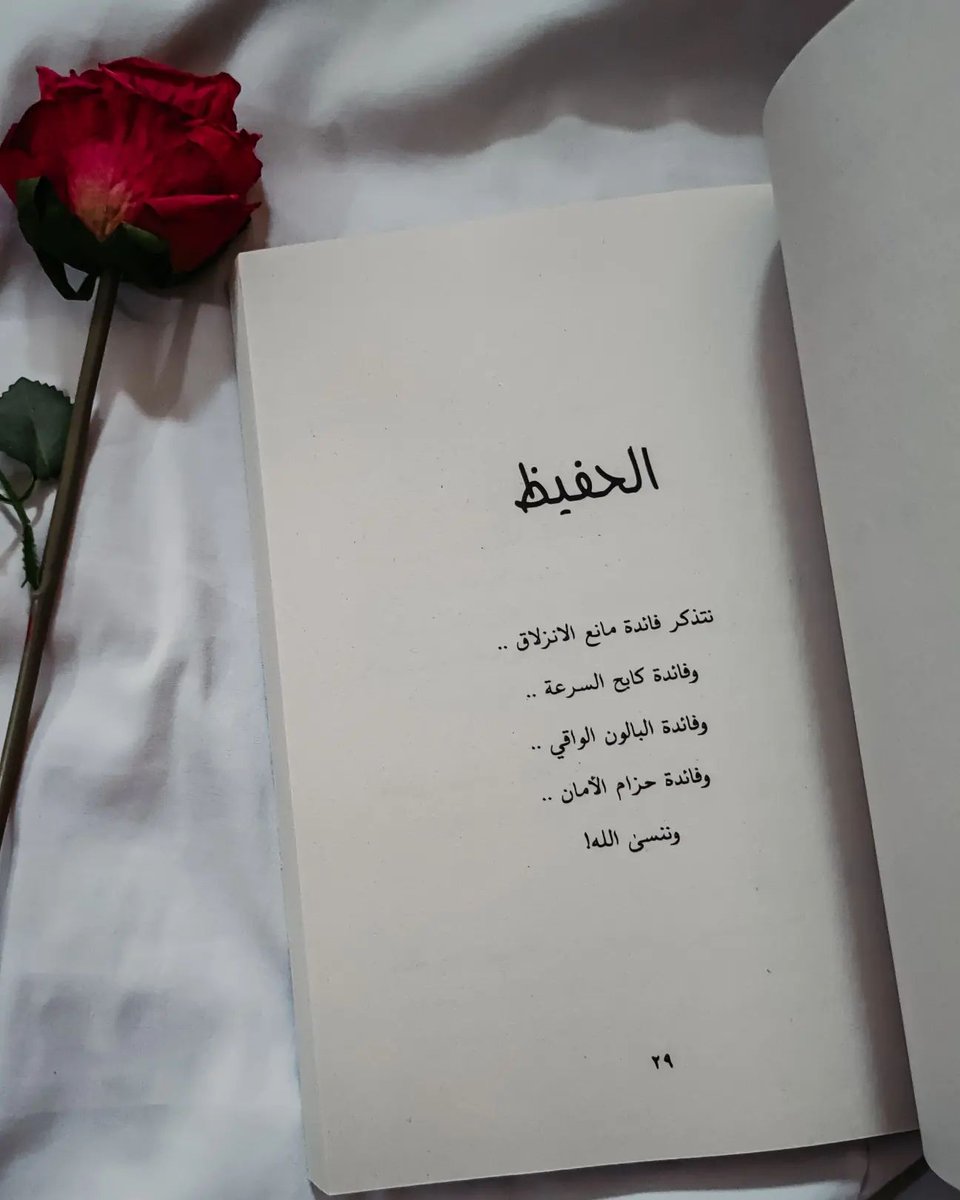 الحفيظ
نتذكر فائدة مانع الانزلاق ..
وفائدة كابح السرعة ..
وفائدة البالون الواقي ..
وفائدة حزام الأمان ..
وننسىٰ الله!
٢٩